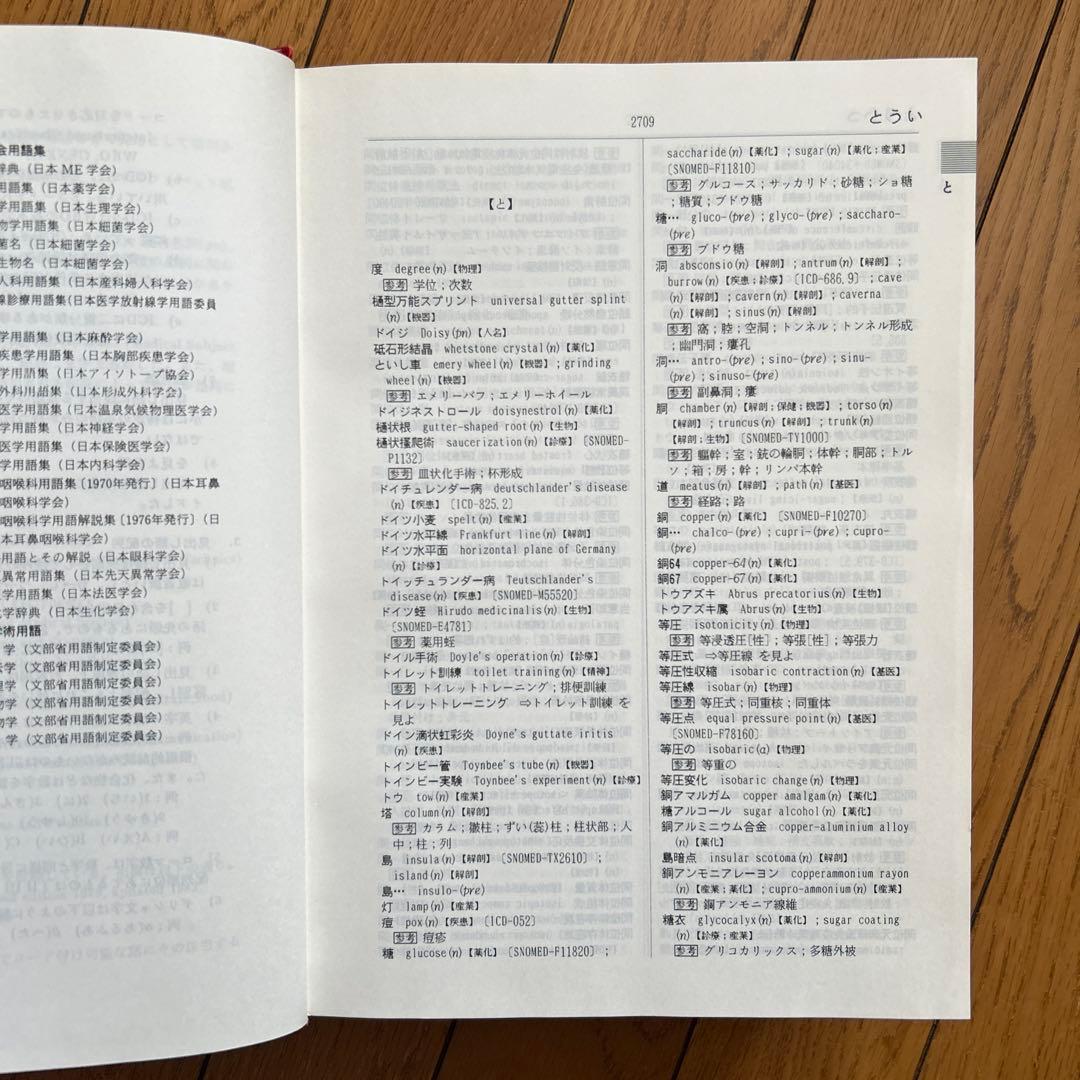 会用語集
辞典（日本ME学会）
用語集（日本薬学会）
学用語集（日本生理学会）
物学用語集（日本細菌学会）
菌名（日本細菌学会）
生物名（日本細菌学会）
人科用語集（日本産科婦人科学会）
線診療用語集(日本医学放射線学用語委員
学用語集（日本麻酔学会）
疾患学用語集（日本胸部疾患学会）
学用語集（日本アイソトープ協会）
外科用語集（日本形成外科学会）
医学用語集（日本温泉気候物理医学会）
学用語集（日本神経学会）
医学用語集（日本保険医学会）
学用語集（日本内科学会）
咽喉科用語集〔1970年発行〕（日本耳鼻
咽喉科学会）
咽喉科学用語解説集〔1976年発行〕（日
本耳鼻咽喉科学会）
用語とその解説（日本眼科学会）
異常用語集（日本先天異常学会）
学用語集（日本法医学会）
化学辞典（日本生化学会）
学術用語
学（文部省用語制定委員会）
学（文部省用語制定委員会）
理学（文部省用語制定委員会）
物学（文部省用語制定委員会）
物学（文部省用語制定委員会）
学（文部省用語制定委員会）
2709
とうい
と
【と】
度 degree(n)【物理】
参考 学位；次数
樋型万能スプリント universal gutter splint
(n)【機器】
ドイジ Doisy(pn)【人名】
砥石形結晶 whetstone crystal(n)【薬化】
といし車 emery wheel(n)【機器】；grinding
wheel(n)【機器】
参考 エメリーバフ；エメリーホイール
ドイジネストロール doisynestrol(n)【薬化】
樋状根 gutter-shaped root(n)【生物】
樋状掻爬術 saucerization(n)【診療】〔SNOMED-
P1132〕
参考 皿状化手術；杯形成
ドイチュレンダー病 deutschlander's disease
(n)【疾患】〔ICD-825.2〕
ドイツ小麦 spelt(n)【産業】
ドイツ水平線 Frankfurt line(n)【解剖】
ドイツ水平面 horizontal plane of Germany
(n)【診療】
トイッチュランダー病 Teutschlander's
disease(n)【疾患】〔SNOMED-M55520〕
ドイツ蛭 Hirudo medicinalis(n)【生物】
〔SNOMED-E4781〕
参考 薬用蛭
ドイル手術 Doyle's operation(n)【診療】
トイレット訓練 toilet training(n)【精神】
参考 トイレットトレーニング；排便訓練
トイレットトレーニング ⇒トイレット訓練 を
見よ
ドイン滴状虹彩炎 Doyne's guttate iritis
(n)【疾患】
トインビー管 Toynbee's tube(n)【機器】
トインビー実験 Toynbee's experiment(n)【診療】
トウ tow(n)【産業】
塔 column(n)【解剖】
参考 カラム；皺柱；ずい(蕊)柱；柱状部；人
中；柱；列
島 insula(n)【解剖】〔SNOMED-TX2610〕；
island(n)【解剖】
島… insulo-(pre)
灯 lamp(n)【産業】
痘 pox(n)【疾患】〔ICD-052〕
参考 痘疹
糖 glucose(n)【薬化】〔SNOMED-F11820〕；
saccharide(n)【薬化】；sugar(n)【薬化；産業】
〔SNOMED-F11810〕
参考 グルコース；サッカリド；砂糖；ショ糖
；糖質；ブドウ糖
糖… gluco-(pre)；glyco-(pre)；saccharo-
(pre)
参考 ブドウ糖
洞 absconsio(n)【解剖】；antrum(n)【解剖】；
burrow(n)【疾患；診療】〔ICD-686.9〕；cave
(n)【解剖】；cavern(n)【解剖】；caverna
(n)【解剖】；sinus(n)【解剖】
参考 窩；腔；空洞；トンネル；トンネル形成
；幽門洞；瘻孔
洞… antro-(pre)；sino-(pre)；sinu-
(pre)；sinuso-(pre)
参考 副鼻洞；瘻
胴 chamber(n)【解剖；保健；機器】；torso(n)
【解剖】；truncus(n)【解剖】；trunk(n)
【解剖；生物】〔SNOMED-TY1000〕
参考 軀幹；室；銃の輪胴；体幹；胴部；トル
ソ；箱；房；幹；リンパ本幹
道 meatus(n)【解剖】；path(n)【基医】
参考 経路；路
銅 copper(n)【薬化】〔SNOMED-F10270〕
銅… chalco-(pre)；cupri-(pre)；cupro-
(pre)
銅64 copper-64(n)【薬化】
銅67 copper-67(n)【薬化】
トウアズキ Abrus precatorius(n)【生物】
トウアズキ属 Abrus(n)【生物】
等圧 isotonicity(n)【物理】
参考 等浸透圧[性]；等張[性]；等張力
等圧式 ⇒等圧線 を見よ
等圧性収縮 isobaric contraction(n)【基医】
等圧線 isobar(n)【物理】
参考 等圧式；同重核；同重体
等圧点 equal pressure point(n)【基医】
〔SNOMED-F78160〕
等圧の isobaric(a)【物理】
参考 等重の
等圧変化 isobaric change(n)【物理】
銅アマルガム copper amalgam(n)【薬化】
糖アルコール sugar alcohol(n)【薬化】
銅アルミニウム合金 copper-aluminium alloy
(n)【薬化】
島暗点 insular scotoma(n)【解剖】
銅アンモニアレーヨン copperammonium rayon
(n)【産業；薬化】；cupro-ammonium(n)【産業】
参考 銅アンモニア線維
糖衣 glycocalyx(n)【薬化】；sugar coating
(n)【診療；産業】
参考 グリコカリックス；多糖外被